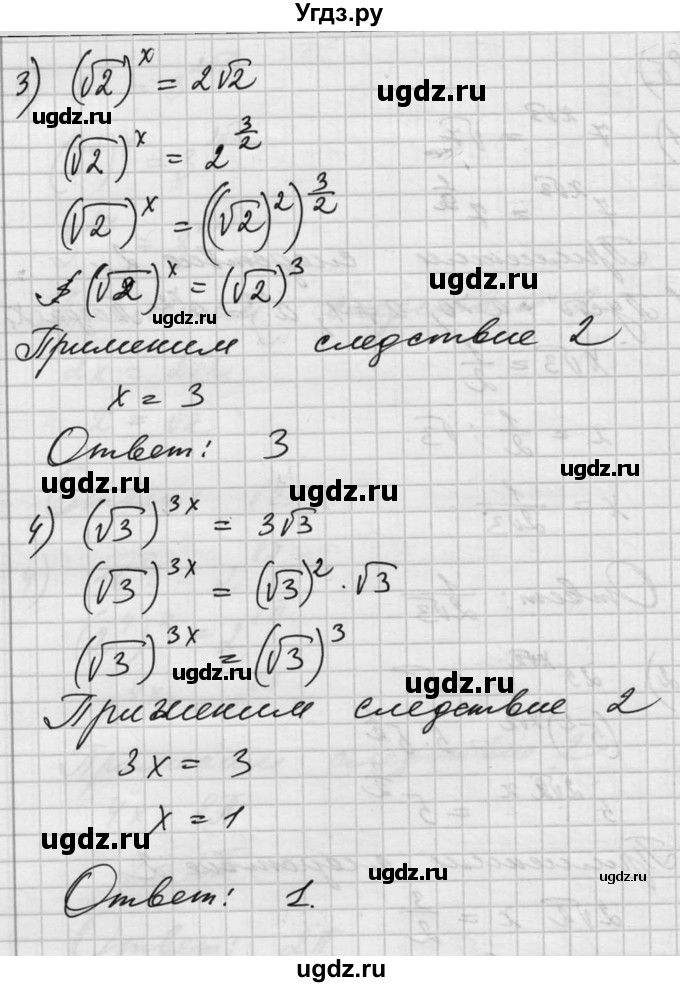 Угдз.ру
3) (√2)^x = 2√2
ugdz.ru
ugdz.ru
(√2)^x = 2^(3/2)
(√2)^x = ((√2)^2)^(3/2)
ugdz.ru
(√2)^x = (√2)^3
ugdz.ru
Применим следствие 2
x = 3
Ответ: 3
ugdz.ru
ugdz.ru
ugdz.ru
4) (√3)^3x = 3√3
(√3)^3x = (√3)^2 · √3
(√3)^3x = (√3)^3
ugdz.ru
ugdz.ru
Применим следствие 2
3x = 3
x = 1
ugdz.ru
ugdz.ru
Ответ: 1.
ugdz.ru
ugdz.ru